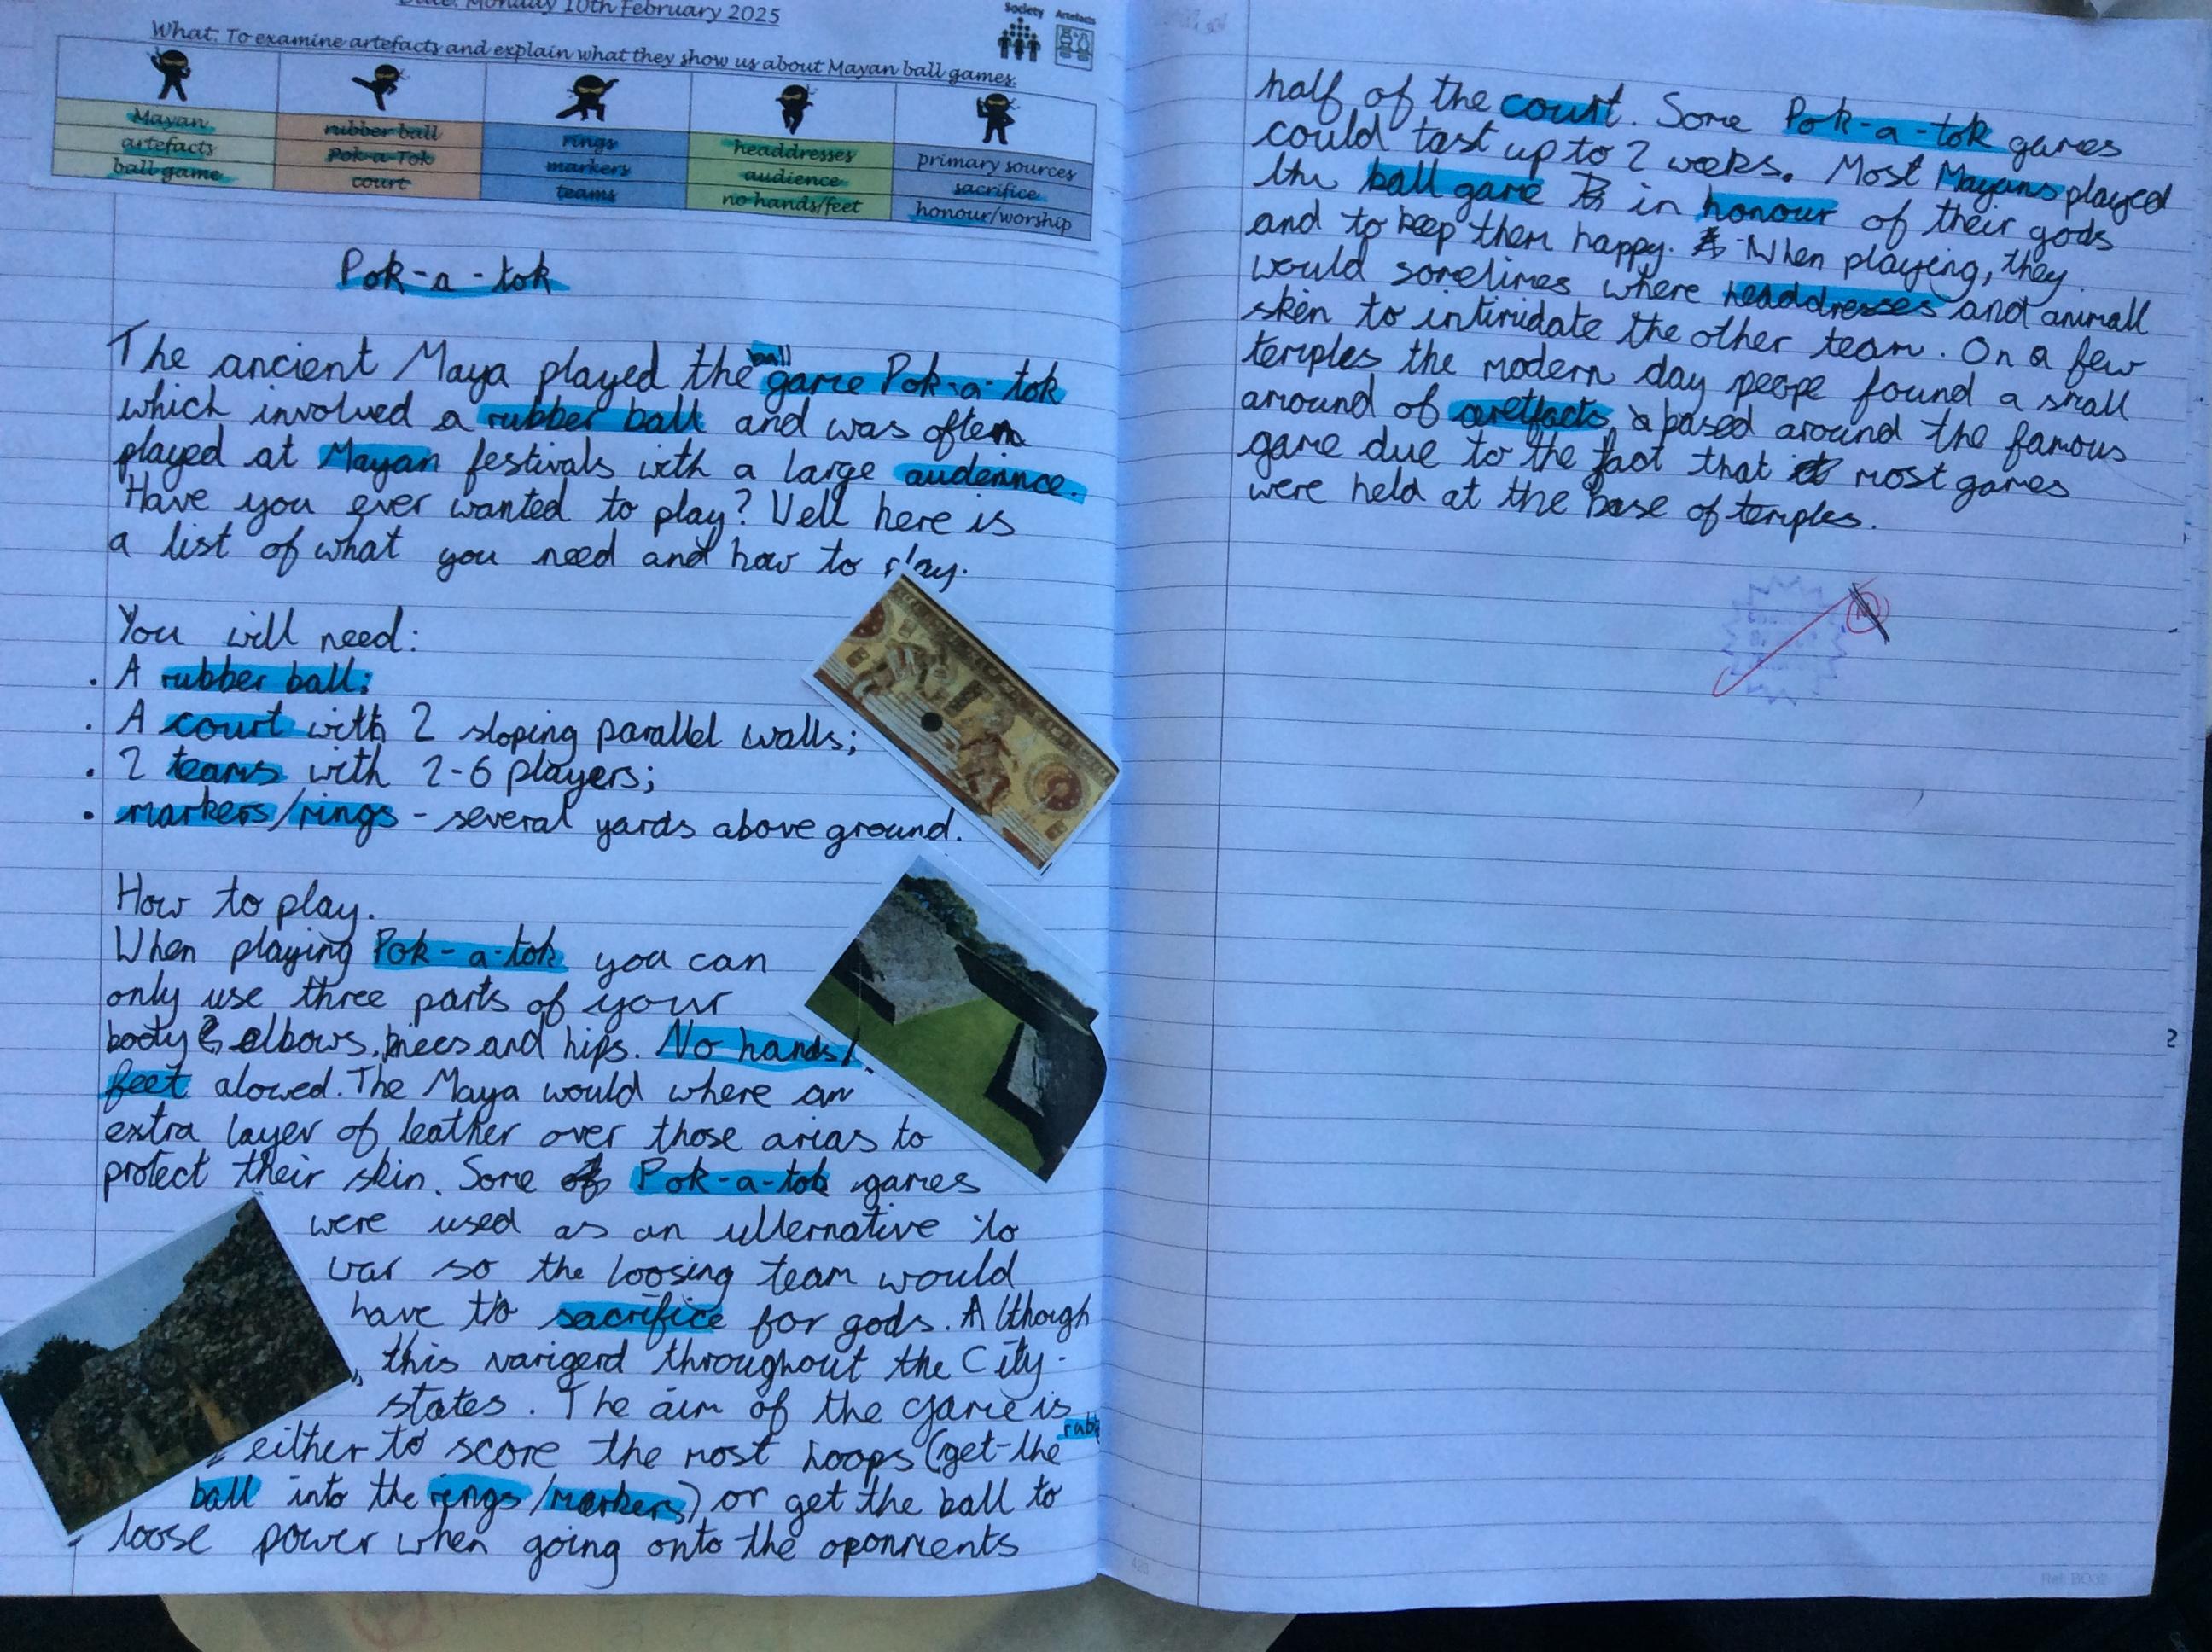 Date: Monday 10th February 2025
Society Artefacts
What: To examine artefacts and explain what they show us about Mayan ball games.
Mayan
artefacts
ball game
rubber ball
Pok-a-Tok
court
rings
markers
teams
headdresses
audience
no hands/feet
primary sources
sacrifice
honour/worship
Pok-a-tok
The ancient Maya played the ball game Pok-a-tok
which involved a rubber ball and was often
played at Mayan festivals with a large audeince.
Have you ever wanted to play? Well here is
a list of what you need and how to play.
You will need:
. A rubber ball;
. A court with 2 sloping parallel walls;
. 2 teams with 2-6 players;
. markers/rings - several yards above ground.
How to play.
When playing Pok-a-tok you can
only use three parts of your
body elbows, knees and hips. No hands/
feet alowed. The Maya would where an
extra layer of leather over those arias to
protect their skin. Some Pok-a-tok games
were used as an ulternative to
war so the loosing team would
have to sacrifice for gods. Although
this varigerd throughout the City-
states. The aim of the game is
either to score the most hoops (get the
ball into the rings/markers) or get the ball to
loose power when going onto the oponments
half of the court. Some Pok-a-tok games
could tast up to 2 weeks. Most Mayans played
the ball game in honour of their gods
and to keep them happy. When playing, they
would sometimes where headdresses and animall
sken to intimidate the other team. On a few
temples the modern day peope found a small
amound of based around the famous
game due to the fact that most games
were held at the base of temples.